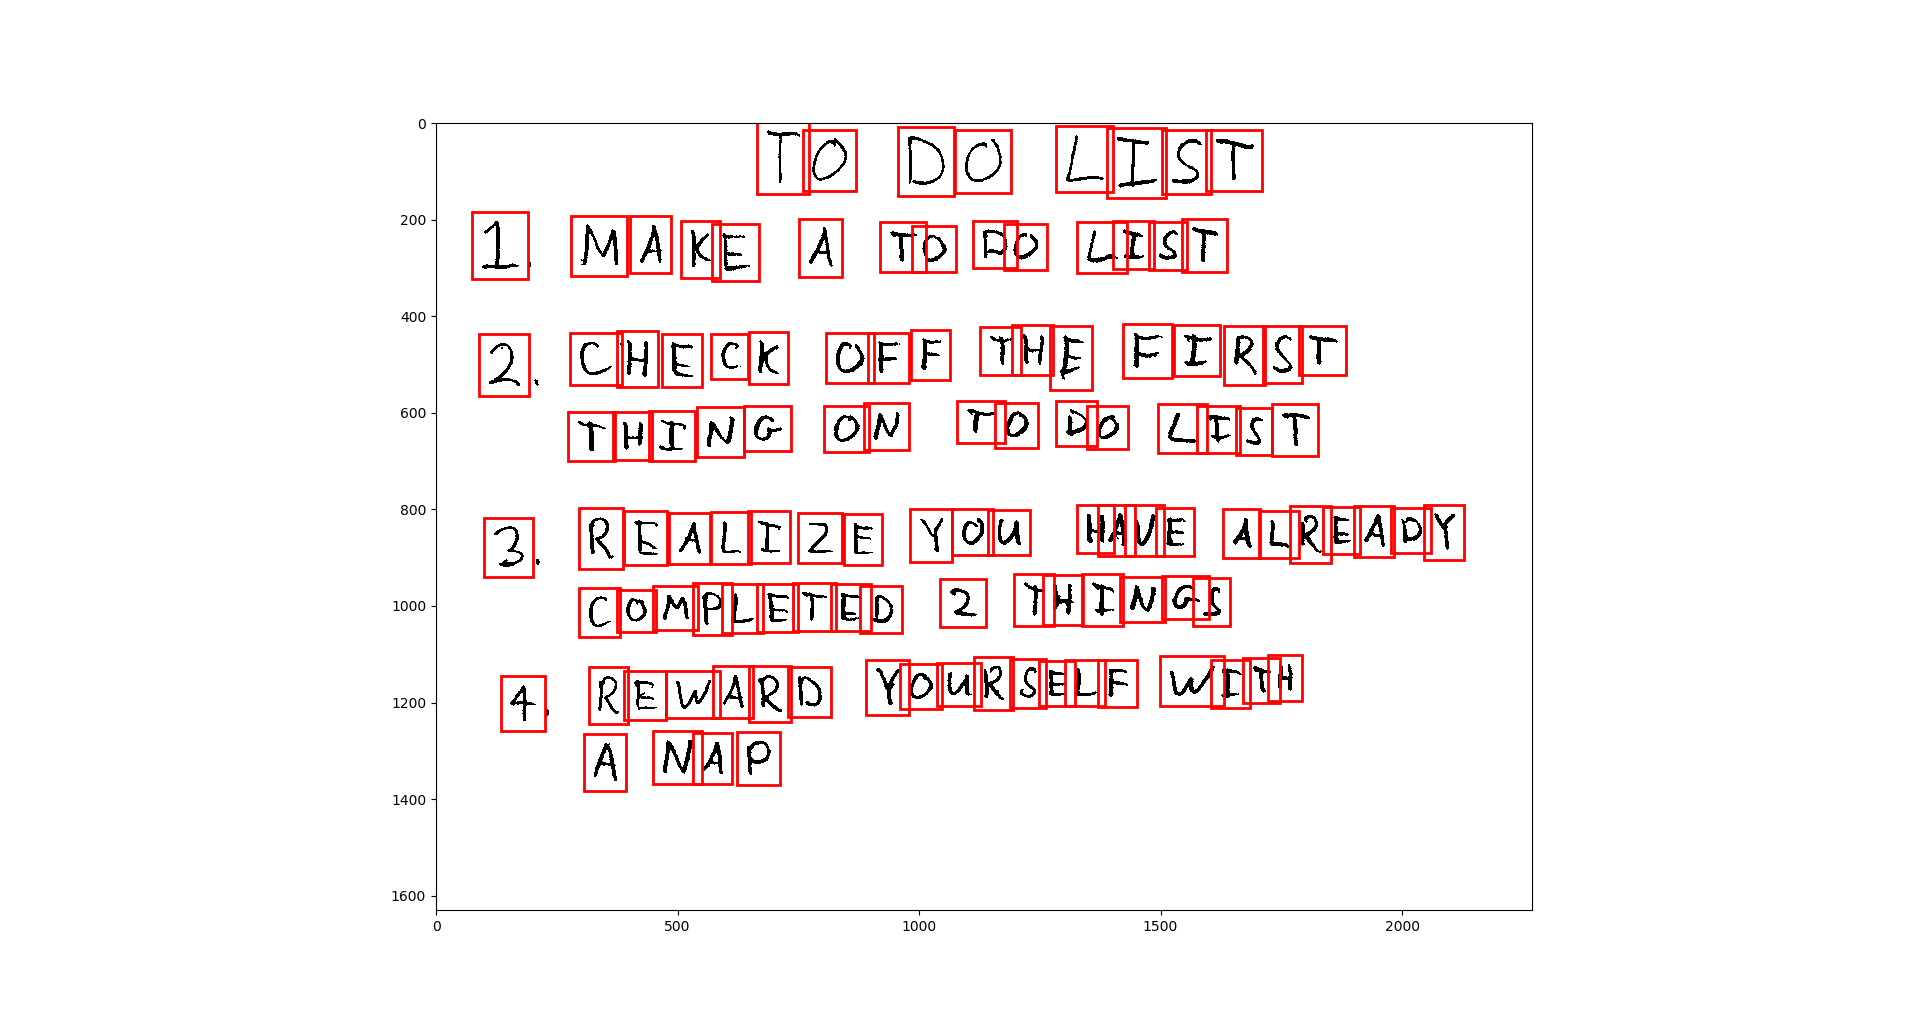 TO DO LIST
1. MAKE A TO DO LIST
2. CHECK OFF THE FIRST
THING ON TO DO LIST
3. REALIZE YOU HAVE ALREADY
COMPLETED 2 THINGS
4. REWARD YOURSELF WITH
A NAP
0
200
400
600
800
1000
1200
1400
1600
0 500 1000 1500 2000